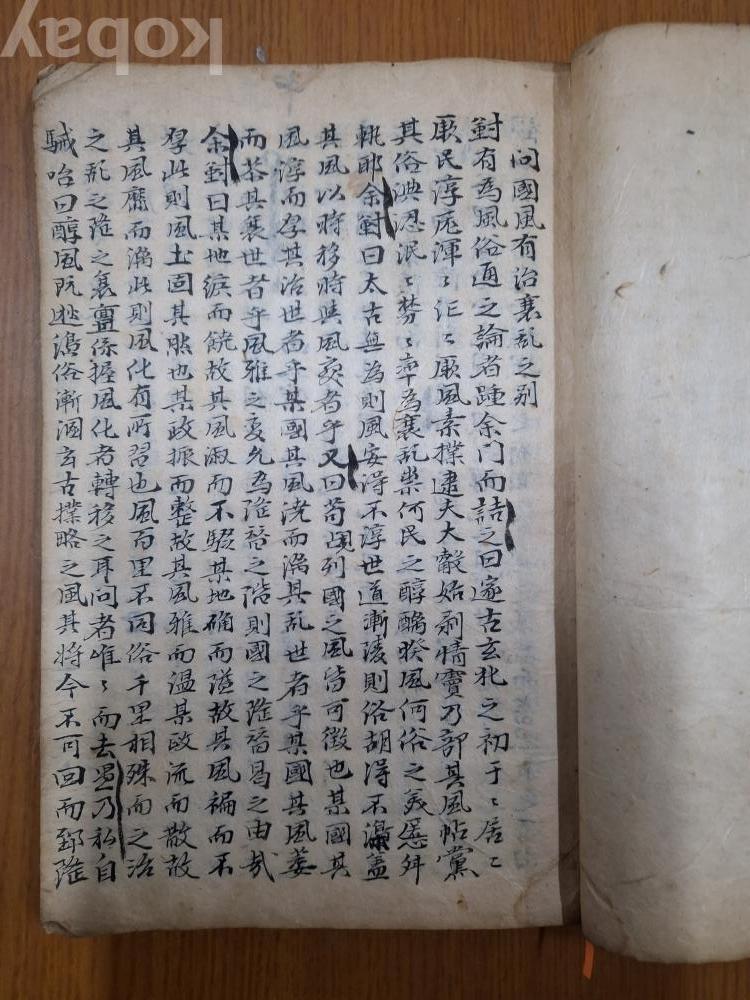 問國風有治襄乱之别
對有為風俗通之論者踵余門而詰之曰邃古玄牝之初于〻居〻
厥民淳厖渾〻沌〻厥風素撲逮夫大䝉始剖情竇乃部其風帖黨
其俗㳟忍泯〻棼〻率為襄乱㷂何民之醇醨睽風何俗之羙慝舛
𫐖耶余對曰太古無為則風安得不淳世道漸陵則俗胡得不漓盖
其風以時移時與風變者乎又曰苟以列國之風皆可徵也某國其
風淳而厚其治世者乎某國其風澆而漓其乱世者乎某國其風萎
而苶其襄世者乎風雅之変允為隆替之階則國之隆替曷之由㢤
余對曰某地瘠而饒故其風淑而不騣某地确而隘故其風褊而不
厚此則風土固其肰也某政振而整故其風雅而温某政流而散故
其風靡而漓此則風化有所習也風百里不同俗千里相殊而之治
之乱之隆之襄亶係握風化者轉移之耳問者唯〻而去愚乃私自
緘咍曰醇風既逖漓俗漸涸玄古撲略之風其將今不可回而郅隆